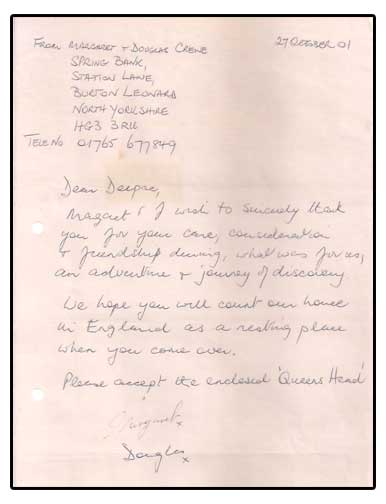 FROM MARGARET & DOUGLAS CREWE
27 OCTOBER 01
SPRING BANK,
STATION LANE,
BURTON LEONARD
NORTH YORKSHIRE
HG3 3RU
TELE NO 01765 677849
Dear Deepac,
Magaret & I wish to sincerely thank
you for your care, consideration
& friendship during, what was for us,
an adventure & journey of discovery
We hope you will count our house
in England as a resting place
when you come over.
Please accept the enclosed 'Queens Head'
Margaret x
Douglas x